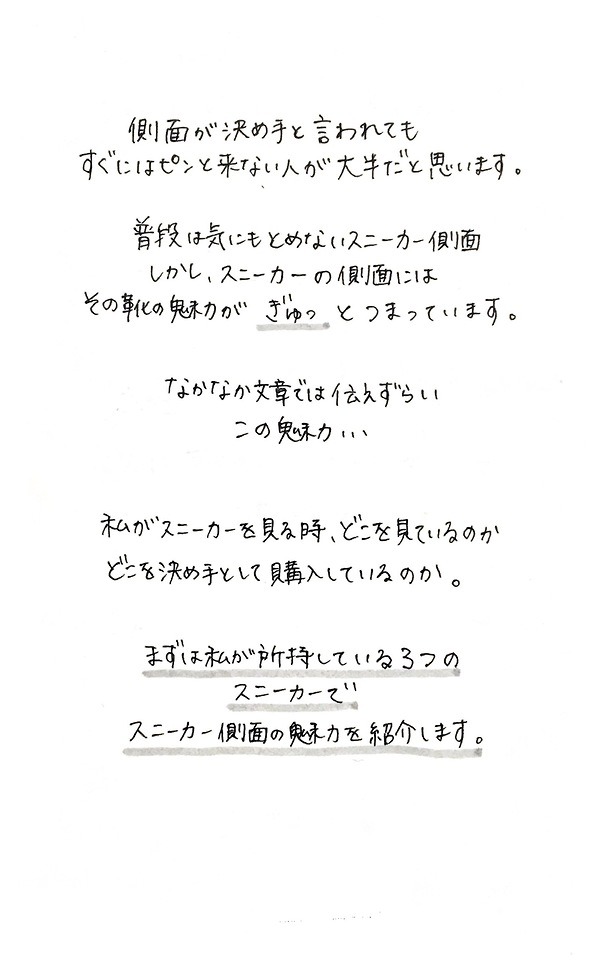 側面が決め手と言われても
すぐにはピンと来ない人が大半だと思います。
普段は気にもとめないスニーカー側面
しかし、スニーカーの側面には
その靴の魅力が ぎゅっ とつまっています。
なかなか文章では伝えずらい
この魅力...
私がスニーカーを見る時、どこを見ているのか
どこを決め手として購入しているのか。
まずは私が所持している3つの
スニーカーで
スニーカー側面の魅力を紹介します。